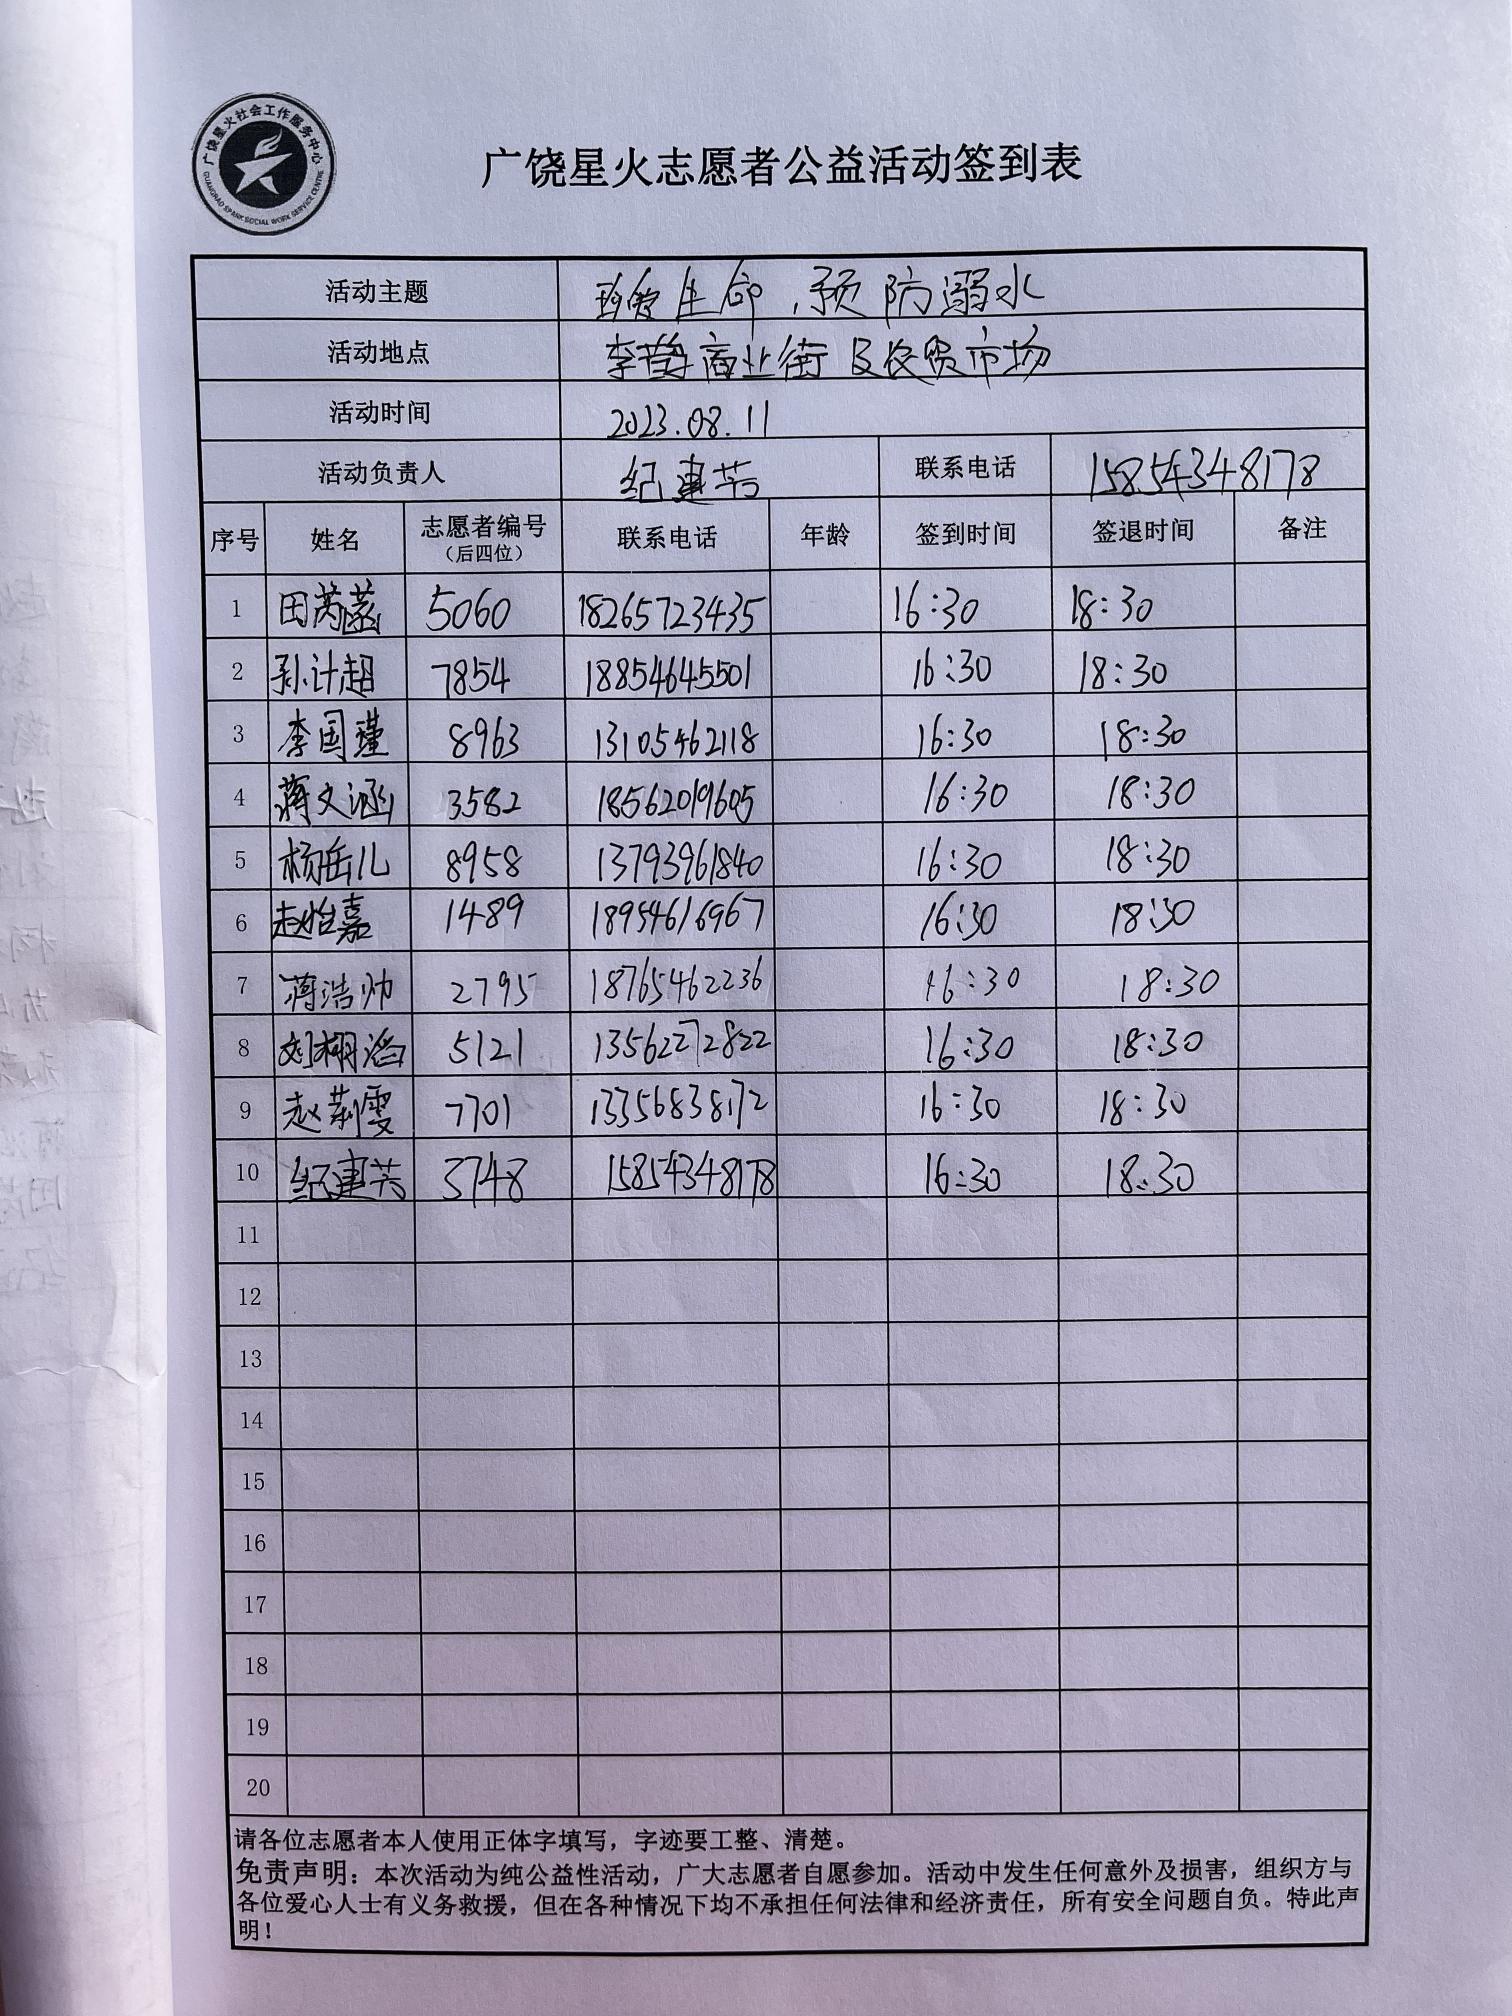 广饶星火社会工作服务中心
GUANGRAO SPARK SOCIAL WORK SERVICE CENTRE
广饶星火志愿者公益活动签到表
活动主题 珍爱生命，预防溺水
活动地点 李鹊商业街及农贸市场
活动时间 2023.08.11
活动负责人 纪建芳 联系电话 15854348178
序号 姓名 志愿者编号（后四位） 联系电话 年龄 签到时间 签退时间 备注
1 田芮菡 5060 18265723435 16:30 18:30
2 孙计超 7854 18854645501 16:30 18:30
3 李国瑾 8963 13105462118 16:30 18:30
4 蒋文涵 3582 18562019605 16:30 18:30
5 杨岳儿 8958 13793961840 16:30 18:30
6 赵怡嘉 1489 18954616967 16:30 18:30
7 蒋浩帅 2795 18765462236 16:30 18:30
8 刘栩滔 5121 13562272822 16:30 18:30
9 赵莉雯 7701 13356838172 16:30 18:30
10 纪建芳 3748 15854348178 16:30 18:30
11
12
13
14
15
16
17
18
19
20
请各位志愿者本人使用正体字填写，字迹要工整、清楚。
免责声明：本次活动为纯公益性活动，广大志愿者自愿参加。活动中发生任何意外及损害，组织方与
各位爱心人士有义务救援，但在各种情况下均不承担任何法律和经济责任，所有安全问题自负。特此声
明！